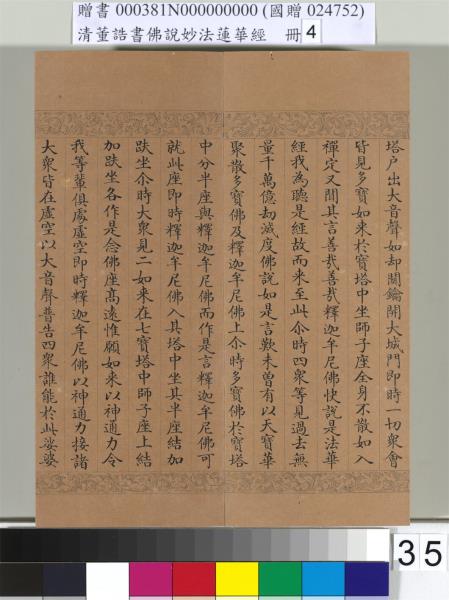 贈書 000381N000000000 (國贈 024752)
清董誥書佛說妙法蓮華經 冊 4
塔戶出大音聲如却關鑰開大城門即時一切衆會
皆見多寶如来於寶塔中坐師子座全身不散如入
禪定又聞其言善哉善哉釋迦牟尼佛快說是法華
經我為聽是經故而来至此尒時四衆等見過去無
量千萬億劫滅度佛說如是言歎未曾有以天寶華
聚散多寶佛及釋迦牟尼佛上尒時多寶佛於寶塔
中分半座與釋迦牟尼佛而作是言釋迦牟尼佛可
就此座即時釋迦牟尼佛入其塔中坐其半座結加
趺坐尒時大衆見二如来在七寶塔中師子座上結
加趺坐各作是念佛座髙遠惟願如来以神通力令
我等輩俱處虛空即時釋迦牟尼佛以神通力接諸
大衆皆在虛空以大音聲普告四衆誰能於此娑婆
35